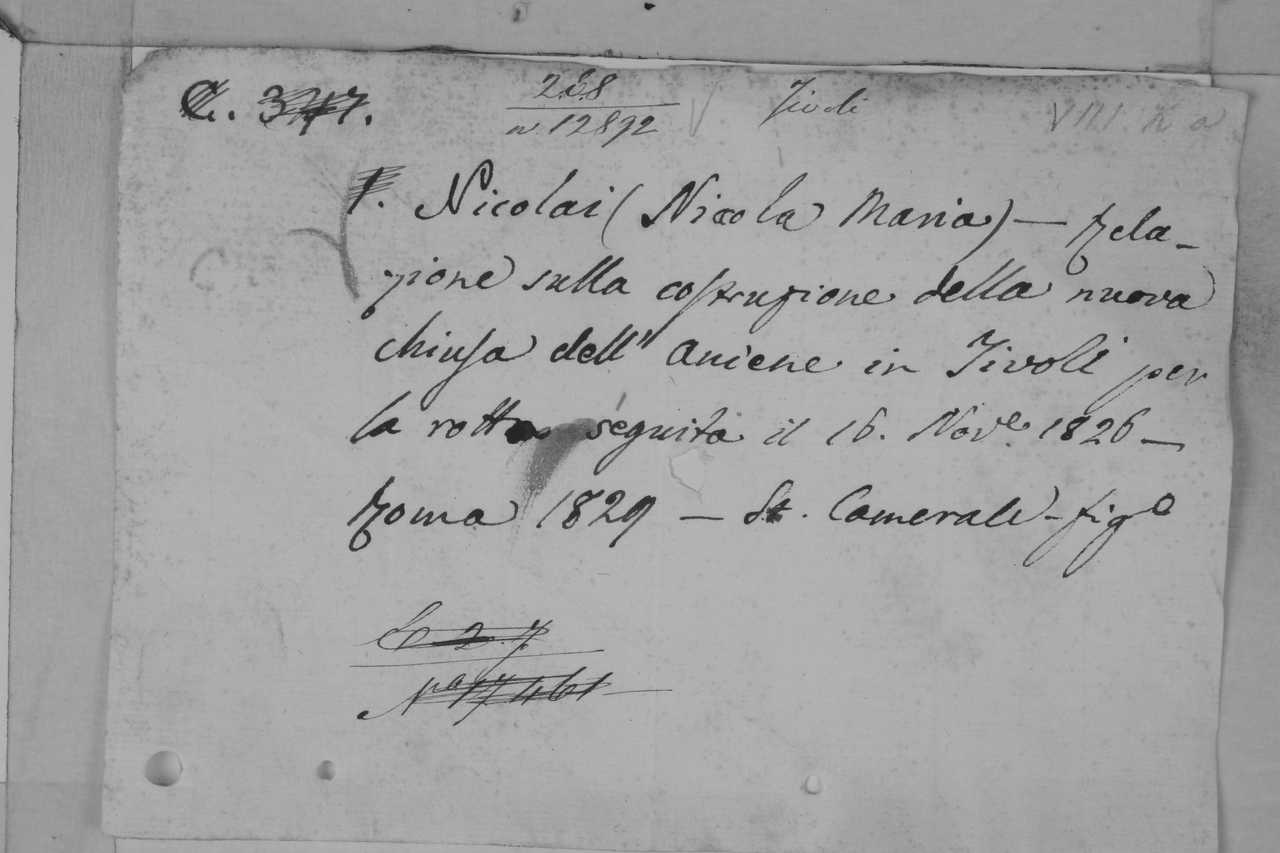 C. 347.
268
n 12892
Tivoli
VIII. K a
1. Nicolai (Nicola Maria) — Rela-
zione sulla costruzione della nuova
chiusa dell' Aniene in Tivoli per
la rotta seguita il 16. Nov.e 1826 —
Roma 1829 — St. Camerale - fig.o
C 2. 7
No 17461